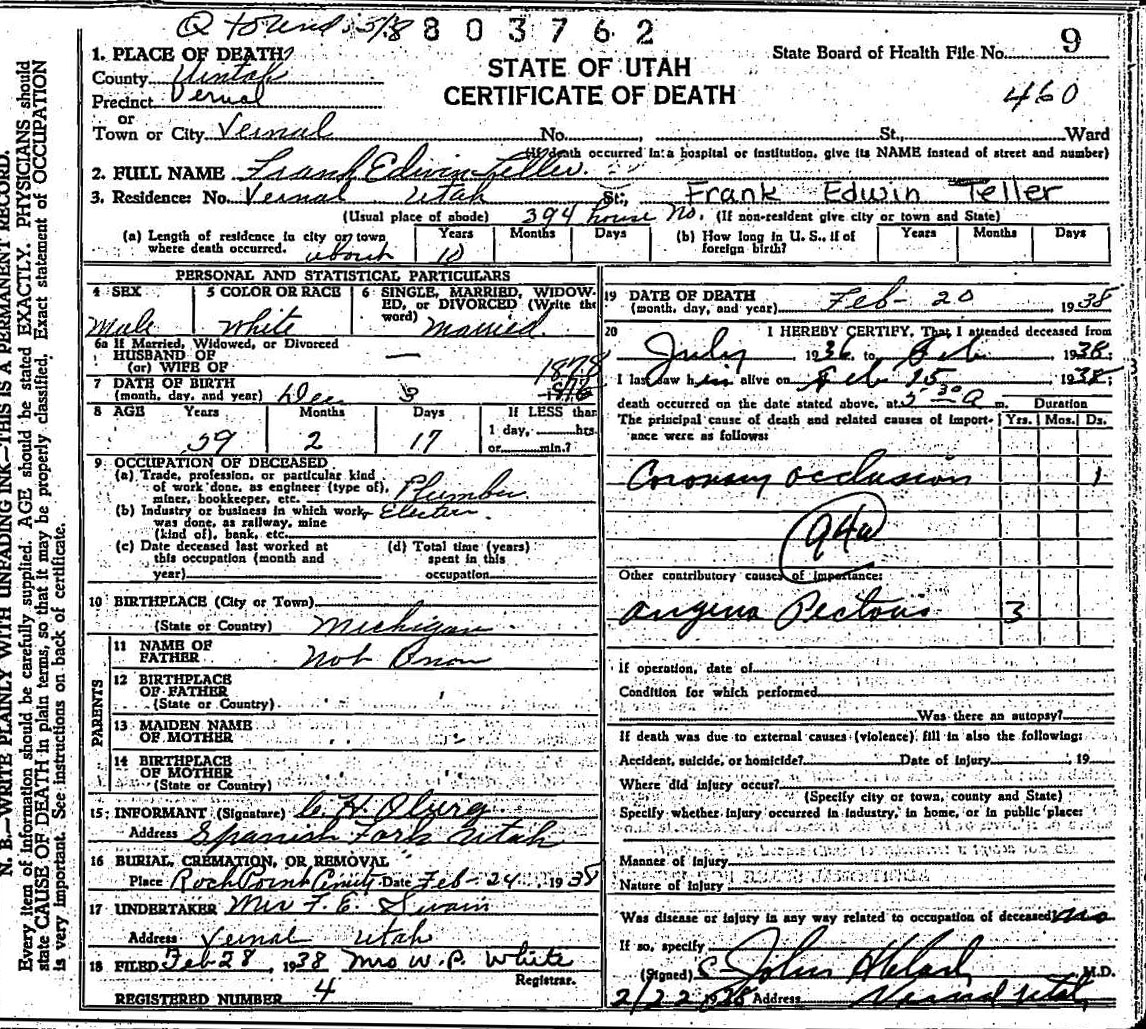 803762
1. PLACE OF DEATH
State Board of Health File No. 9
County Uintah
STATE OF UTAH
Precinct Vernal
CERTIFICATE OF DEATH
460
or
Town or City Vernal No. , St., Ward
(If death occurred in a hospital or institution, give its NAME instead of street and number)
2. FULL NAME Frank Edwin Teller
3. Residence: No. Vernal Utah St., Frank Edwin Teller
(Usual place of abode) 394 house No. (If non-resident give city or town and State)
(a) Length of residence in city or town where death occurred. about Years 10 Months Days
(b) How long in U. S., if of foreign birth? Years Months Days
PERSONAL AND STATISTICAL PARTICULARS
4 SEX Male
5 COLOR OR RACE White
6 SINGLE, MARRIED, WIDOWED, or DIVORCED (Write the word) Married
6a If Married, Widowed, or Divorced
HUSBAND OF
(or) WIFE OF —
7 DATE OF BIRTH
(month, day, and year) Dec 3 1878
8 AGE Years Months Days If LESS than
59 2 17 1 day, hrs.
or min.?
9 OCCUPATION OF DECEASED
(a) Trade, profession, or particular kind
of work done, as engineer (type of),
miner, bookkeeper, etc. Plumber
(b) Industry or business in which work
was done, as railway, mine
(kind of), bank, etc.
(c) Date deceased last worked at
this occupation (month and
year)
(d) Total time (years)
spent in this
occupation
10 BIRTHPLACE (City or Town)
(State or Country) Michigan
PARENTS
11 NAME OF
FATHER Not
12 BIRTHPLACE
OF FATHER
(State or Country)
13 MAIDEN NAME
OF MOTHER
14 BIRTHPLACE
OF MOTHER
(State or Country)
15 INFORMANT (Signature) C. H. Oburg
Address Spanish Fork Utah
16 BURIAL, CREMATION, OR REMOVAL
Place Rock Point Date Feb-24 1938
17 UNDERTAKER Mrs F. E. Swain
Address Vernal Utah
18 FILED Feb 28, 1938 Mrs W. P. White
Registrar.
REGISTERED NUMBER 4
19 DATE OF DEATH
(month, day, and year) Feb- 20 1938
20 I HEREBY CERTIFY, That I attended deceased from
July 1936 to Feb 1938;
I last saw him alive on Feb 15 1938;
death occurred on the date stated above, at 5 30 a m. Duration
The principal cause of death and related causes of importance were as follows: Yrs. Mos. Ds.
Coronary occlusion 1
94a
Other contributory causes of importance:
Angina Pectoris 3
If operation, date of
Condition for which performed
Was there an autopsy?
If death was due to external causes (violence) fill in also the following:
Accident, suicide, or homicide? Date of injury 19
Where did injury occur?
(Specify city or town, county and State)
Specify whether injury occurred in industry, in home, or in public place:
Manner of injury
Nature of injury
Was disease or injury in any way related to occupation of deceased? no
If so, specify
(Signed) M.D.
2/22 1938 Address Vernal Utah
N. B.—WRITE PLAINLY WITH UNFADING INK—THIS IS A PERMANENT RECORD.
Every item of information should be carefully supplied. AGE should be stated EXACTLY. PHYSICIANS should
state CAUSE OF DEATH in plain terms, so that it may be properly classified. Exact statement of OCCUPATION
is very important. See instructions on back of certificate.